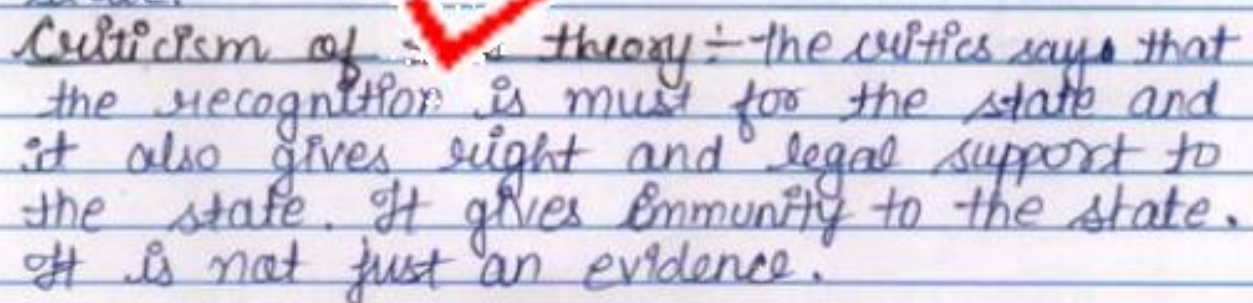 Criticism of theory :- the critics says that
the recognition is must for the state and
it also gives right and legal support to
the state. It gives immunity to the state.
It is not just an evidence.